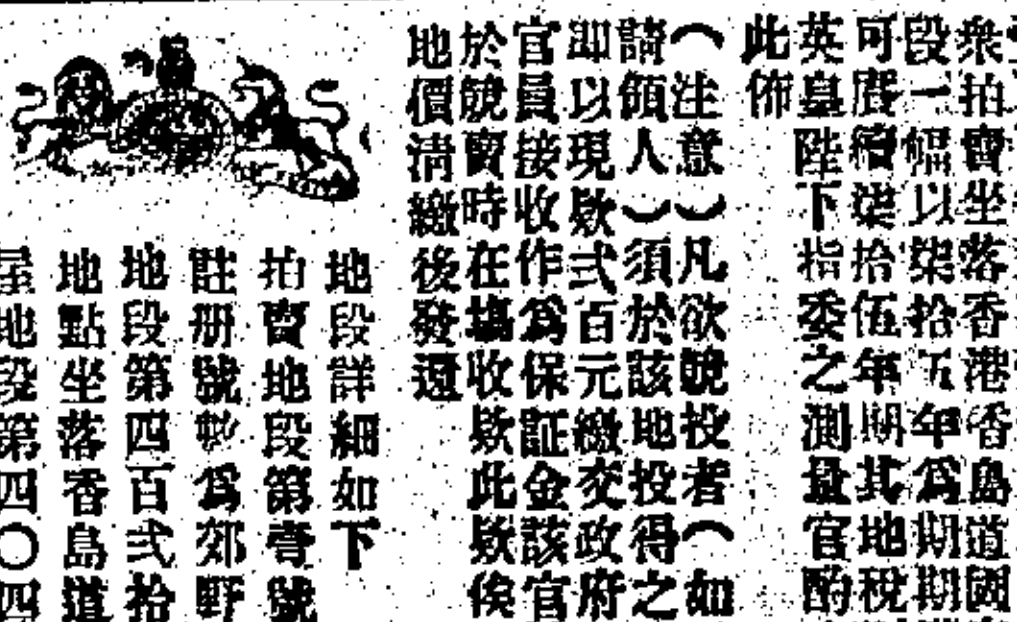 衆拍賣坐落香港香島道國
段一幅以柒拾五年爲期期
可賡續柒拾伍年期其地税
英皇陛下指委之測量官酌
此佈
（注意）凡欲競投者（如
請領人）須於該地投得之
即以現欵弍百元繳交政府
官員接收作爲保証金該官
於競賣時在塲收欵此欵俟
地價淸繳後發還
地段詳細如下
拍賣地段第壹號
註册號數爲郊野
地段第四百弍拾
地點坐落香島道
屋地段第四〇四